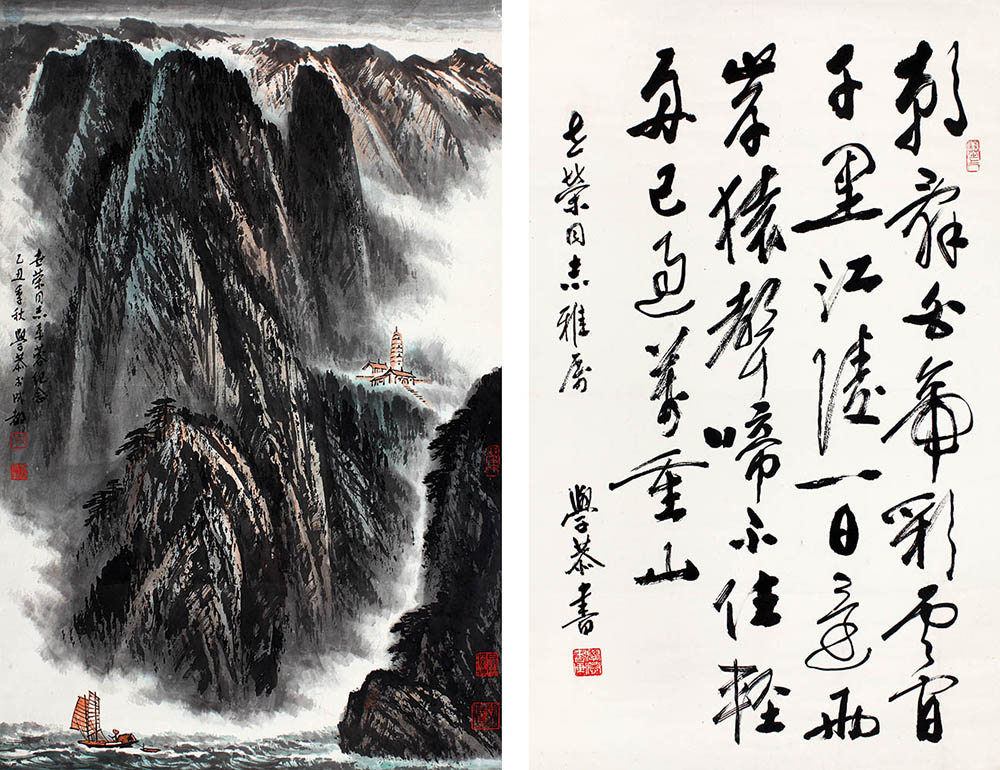 榮同志紀念
乙丑季秋學恭於成都
朝辞白帝彩雲間
千里江陵一日還兩
岸猿聲啼不住輕
舟已過萬重山
榮同志雅屬
學恭書